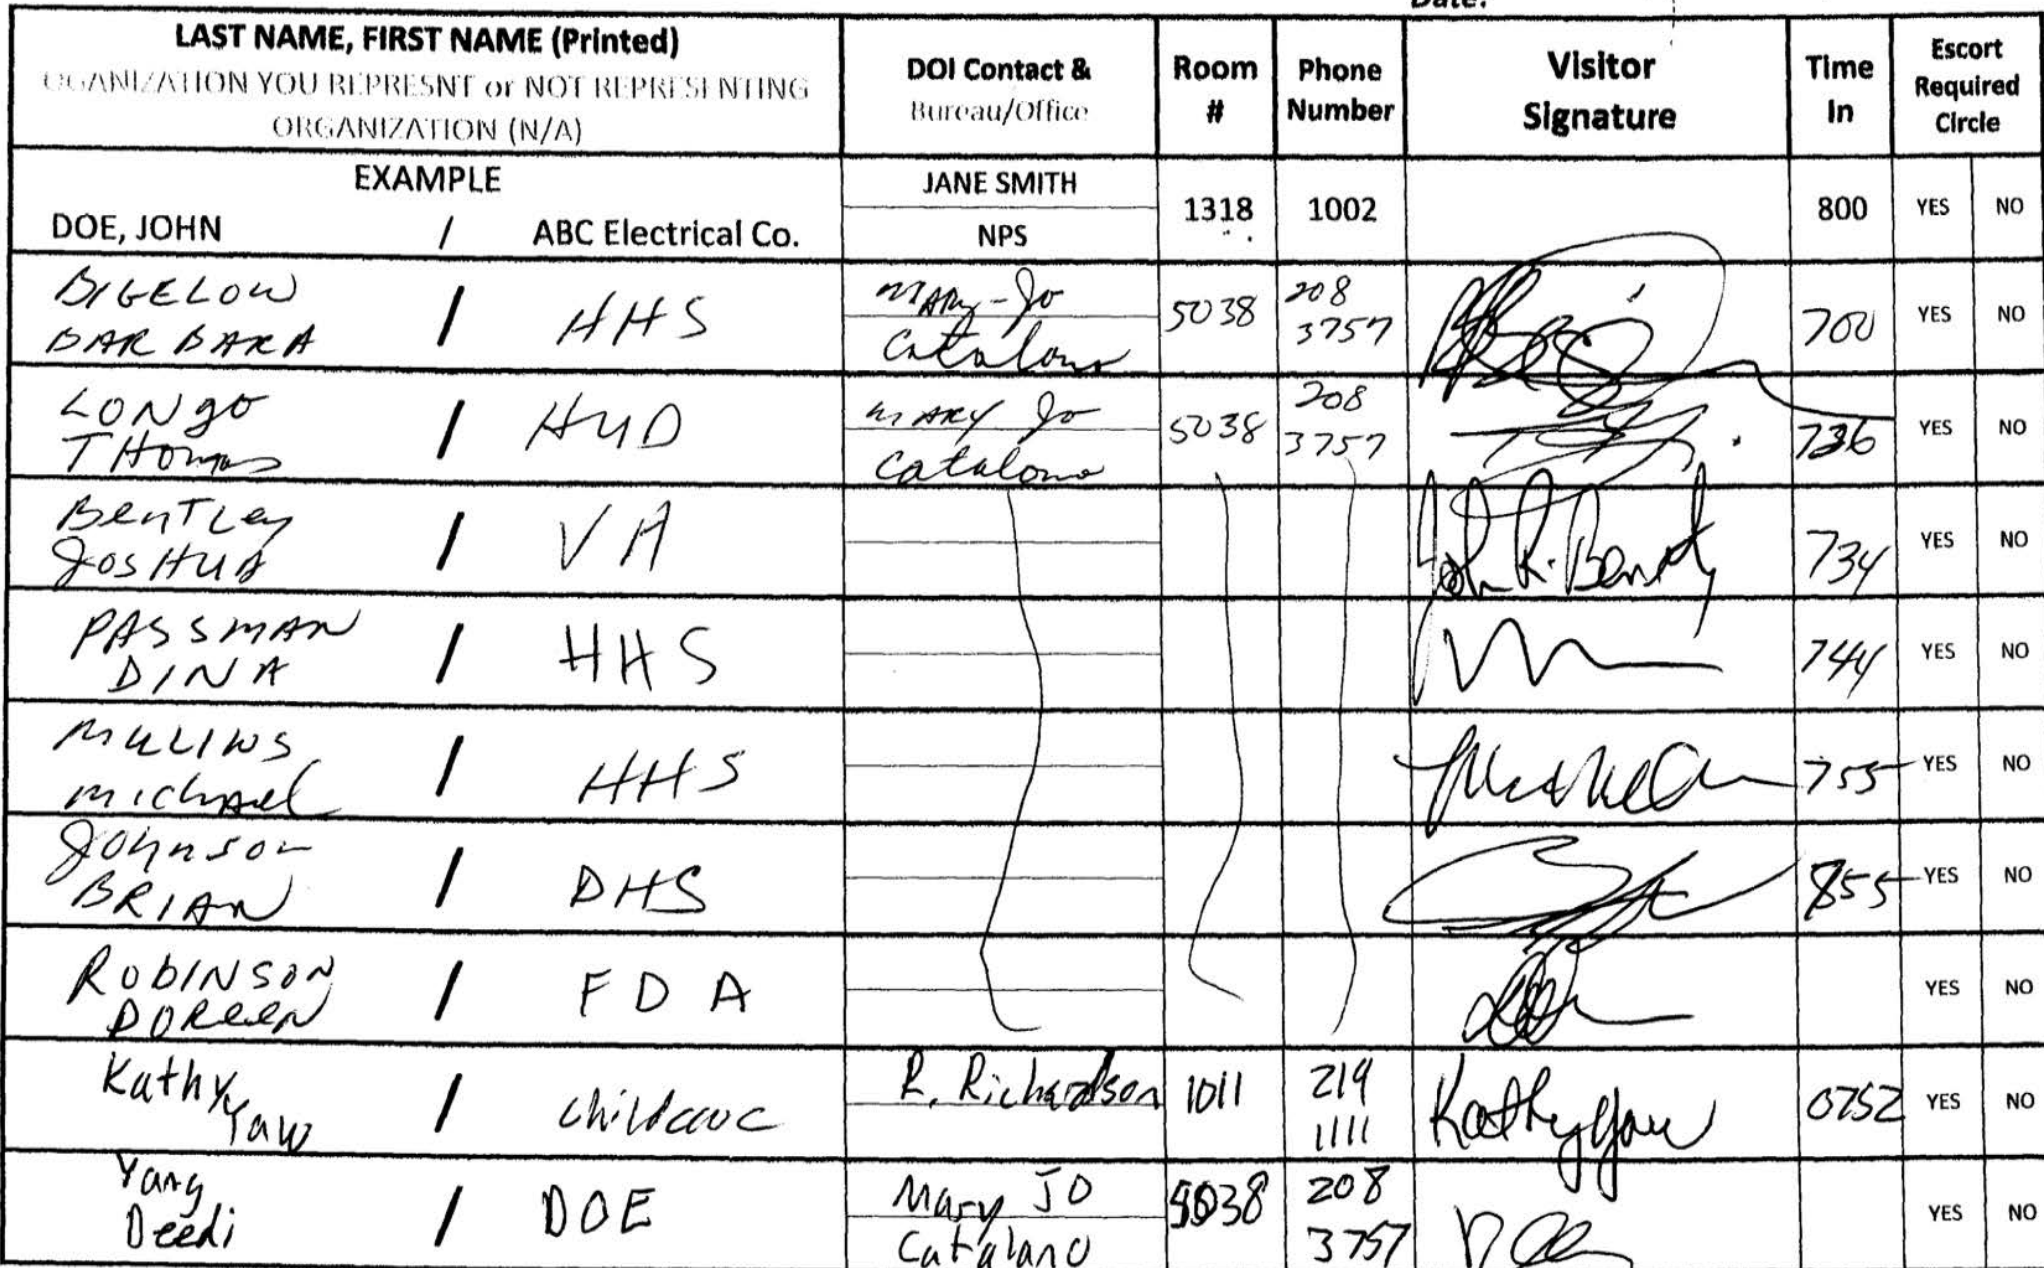 Date:
LAST NAME, FIRST NAME (Printed)
OGANIZATION YOU REPRESNT or NOT REPRESENTING
ORGANIZATION (N/A)
DOI Contact &
Bureau/Office
Room
#
Phone
Number
Visitor
Signature
Time
In
Escort
Required
Circle
EXAMPLE
DOE, JOHN / ABC Electrical Co.
JANE SMITH
NPS
1318 1002 800 YES NO
BIGELOW
BARBARA
/ HHS
MARY-Jo
Catalano
5038
208
3757
700 YES NO
LONgo
THomas
/ HUD
MARY Jo
Catalono
5038
208
3757
736 YES NO
BenTLey
JOSHUA
/ VA
734 YES NO
PASSMAN
DINA
/ HHS
744 YES NO
MULLINS
michael
/ HHS
755 YES NO
Johnson
BRIAN
/ DHS
855 YES NO
ROBINSON
DOReeN
/ FDA
YES NO
Kathy
Yaw
/ childcare
R. Richardson 1011
219
1111
Kathy Yaw
0752 YES NO
Yang
Deedi
/ DOE
Mary JO
Catalano
5038
208
3757
YES NO